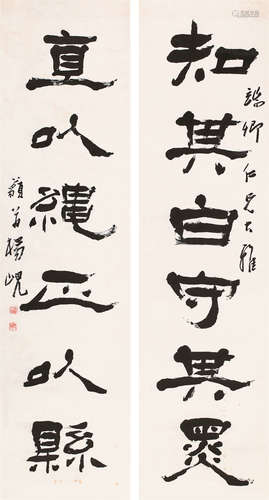 端卿仁兄大雅
知其白守其黑
直以繩正以縣
藐翁楊峴